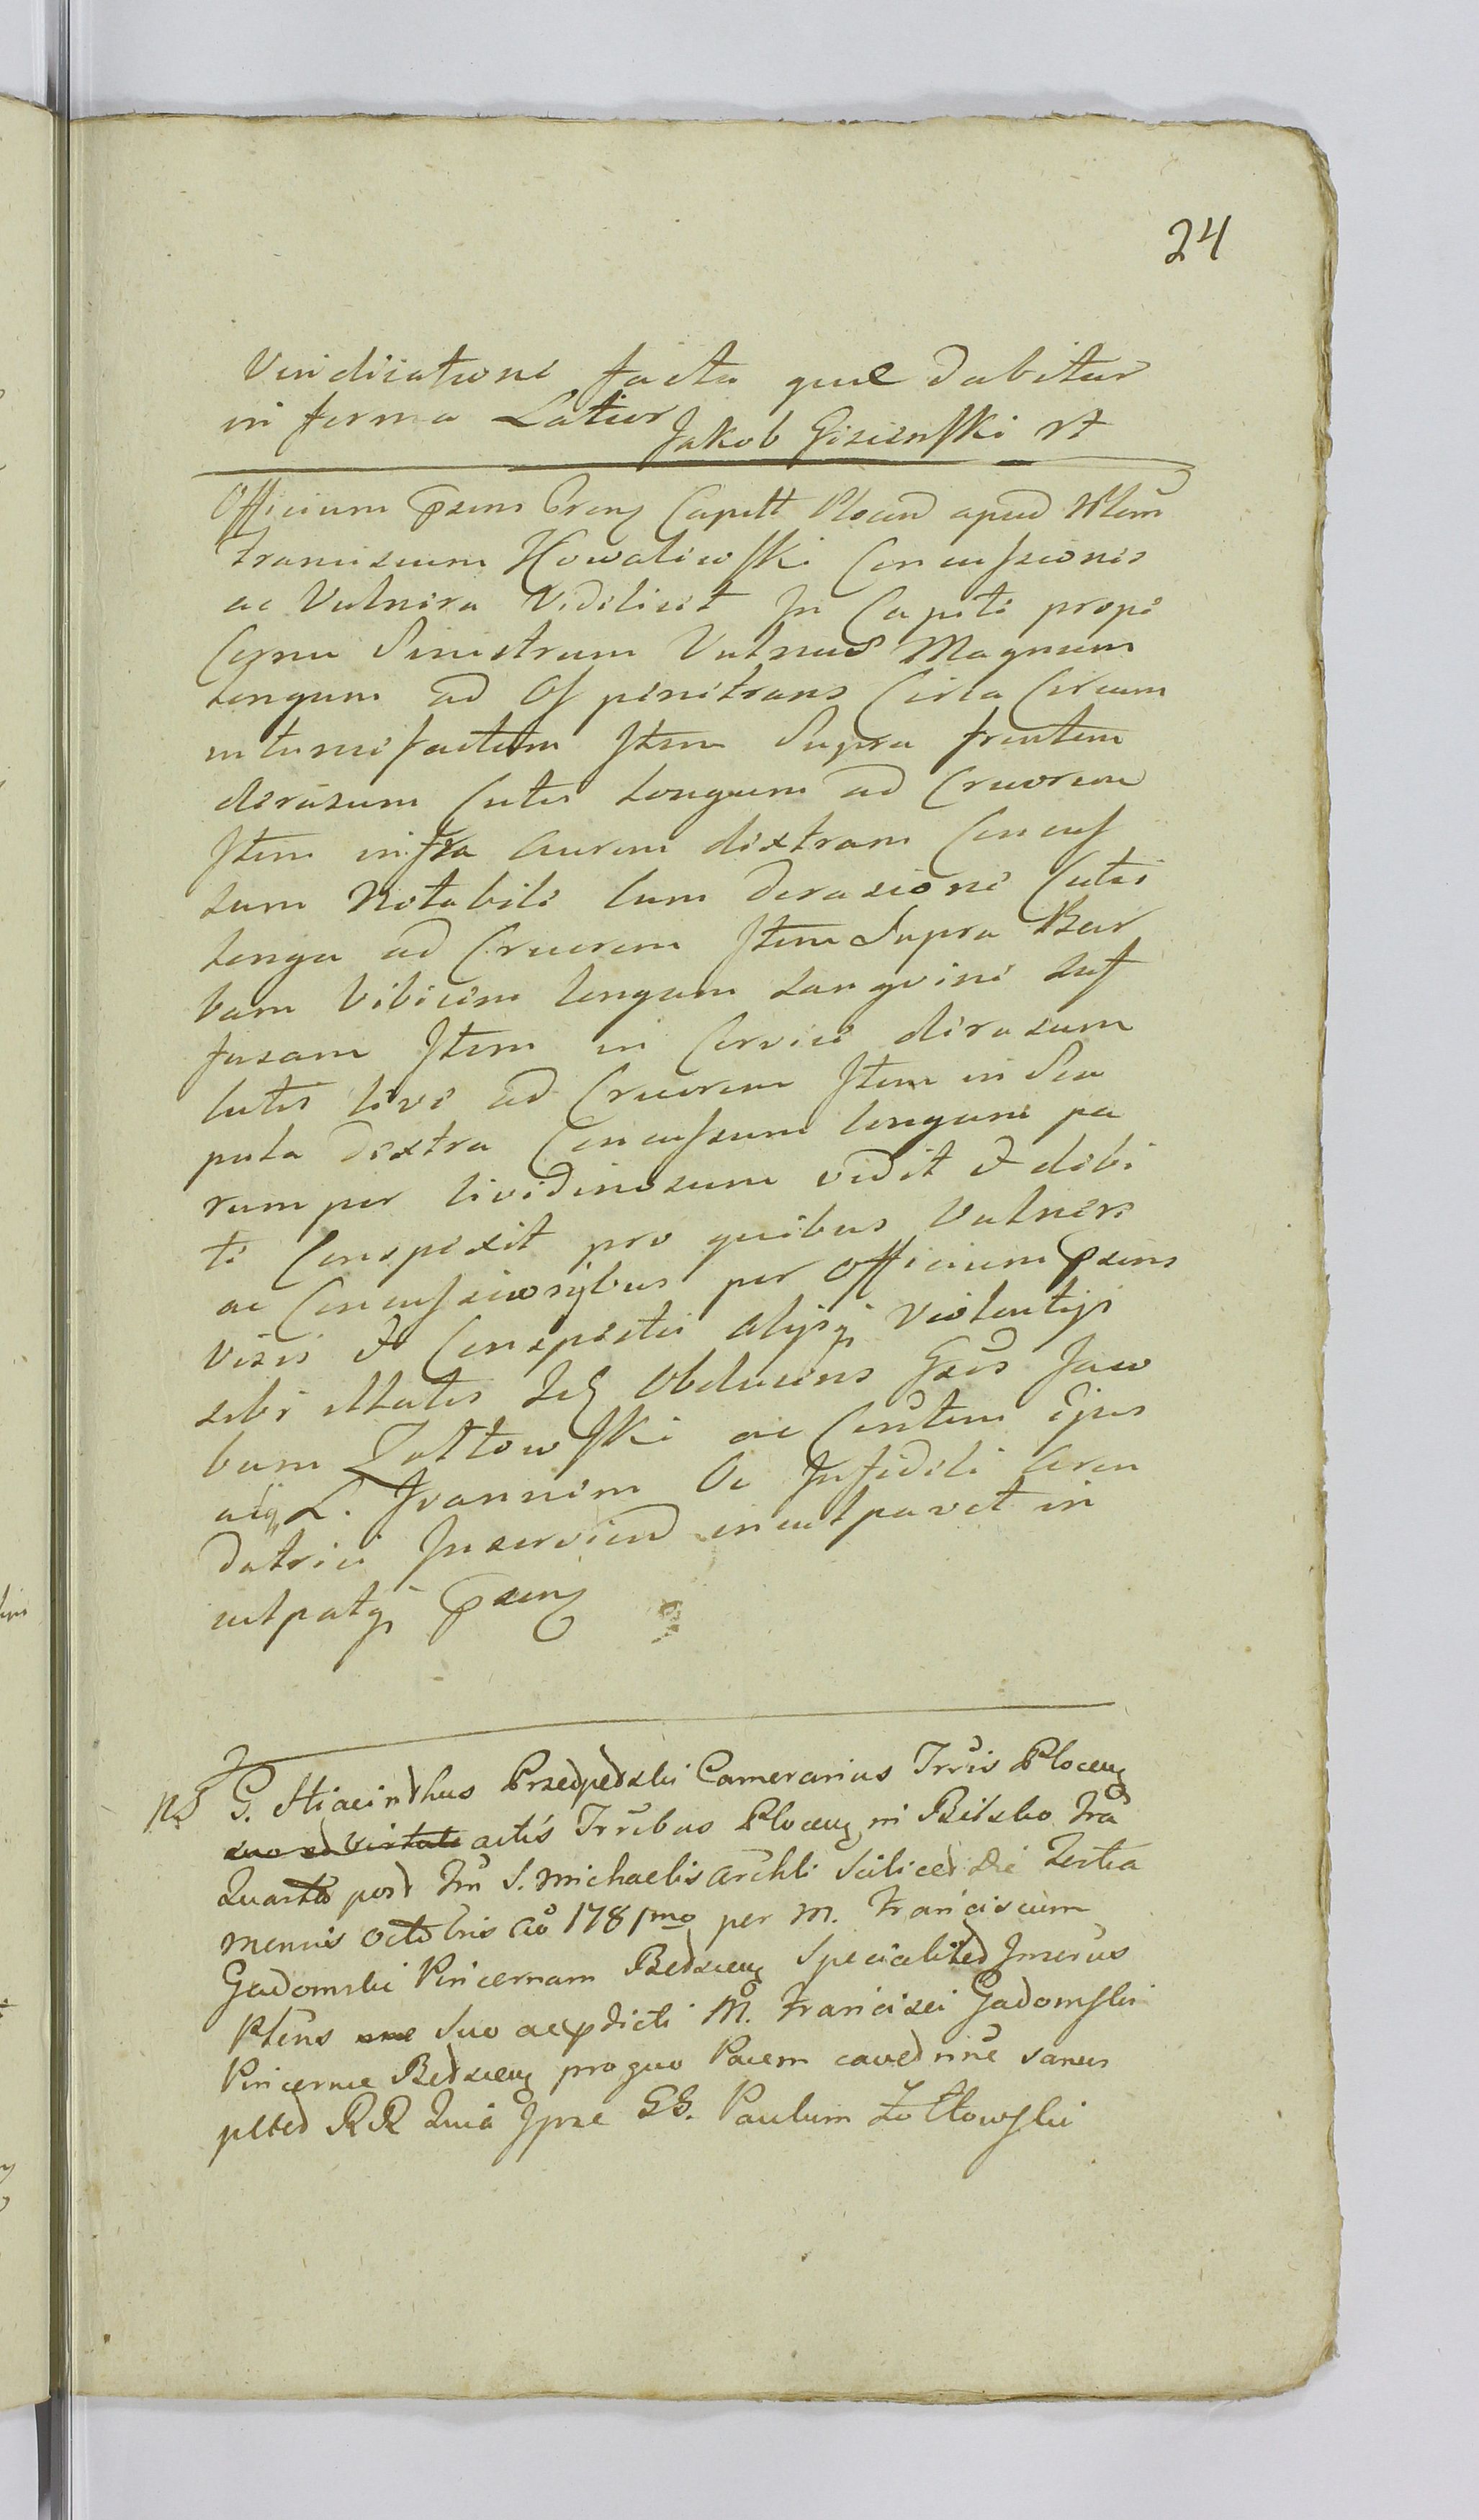 24
Vindicatione facta que dabitur
in forma Latior Jakob Giziński
Officium Pzens Crens Capitt Plocen apud
Franciscum Kowaliewski Concussiones
ac Vulnera Videlicet In Capite prope
Cornu Sinistrum Vulnus Magnum
longum ad Os penetrans Circa Circum
intumefactum Item Supra frontem
derasum Cutis longum ad Cruorem
Item infra aurem dextram Concus
sum Notabile cum derasione Cutis
longa ad Cruorem Item Supra Bar
bam Vibicem longam sangvine suf
fusam Item in Cervice derasum
Cutis leve ad Cruorem Item in Sca
pula dextra Concussum longum pa
rumper lividinosum vidit & debi
te Conspexit pro quibus Vulneri
ac Concussionybus per Officium Pzens
Visis & Conspectis alysq Violentys
sibi illatis Obducens Gzos Jaco
bum Zołtowski ac Contem Ejus
L. Joannem Ac Infideli Aren
datrici Inserviend inculpavit in
culpatq Pzens
NS G. Hiacinthus Przedpełski Camerarius Trris Plocens
suo ed virtute actis Trribus Plocens in Bielsko fra
Quarta post fm S. Michaelis Archli Scilicet die Tertia
Mensis Octobris Ao 1781mo per M. Franciscum
Gadomski Pincernam Specialiter
Ptens sue Suo ac pdicti M. Francisci Gadomski
Pincernae pro quo Pacem cavet nine
plted RR Quia Ipse GG. Paulum Zołtowski